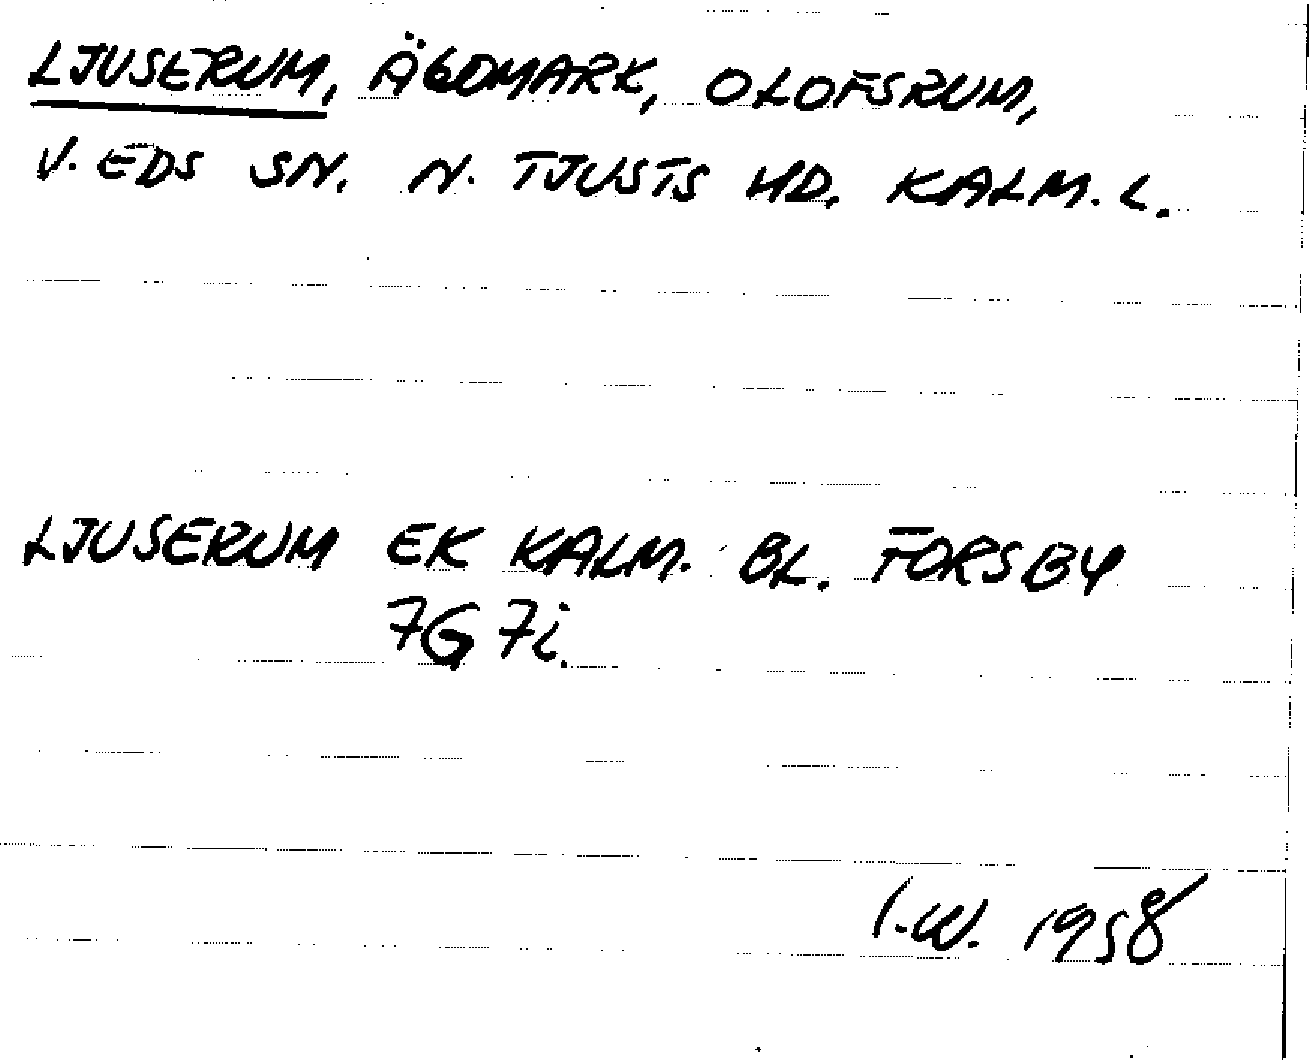 LJUSERUM, ÄGOMARK, OLOFSRUM,
V. EDS SN. N. TJUSTS HD. KALM. L.
LJUSERUM EK KALM. BL. FORSBY
7G 7i.
I.W. 1958